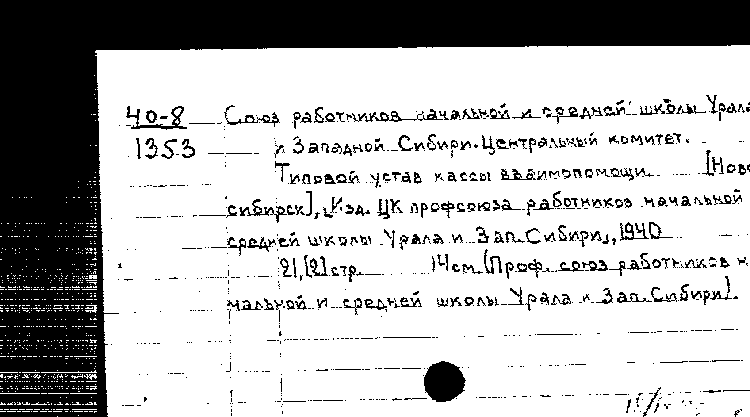 40-8 Союз работников начальной и средней школы Урала
1353 и Западной Сибири. Центральный комитет.
Типовой устав кассы взаимопомощи. [Ново-
сибирск], "Изд. ЦК профсоюза работников начальной
средней школы Урала и Зап. Сибири", 1940
21,[2] стр. 14 см (Проф. союз работников н
чальной и средней школы Урала и Зап. Сибири).